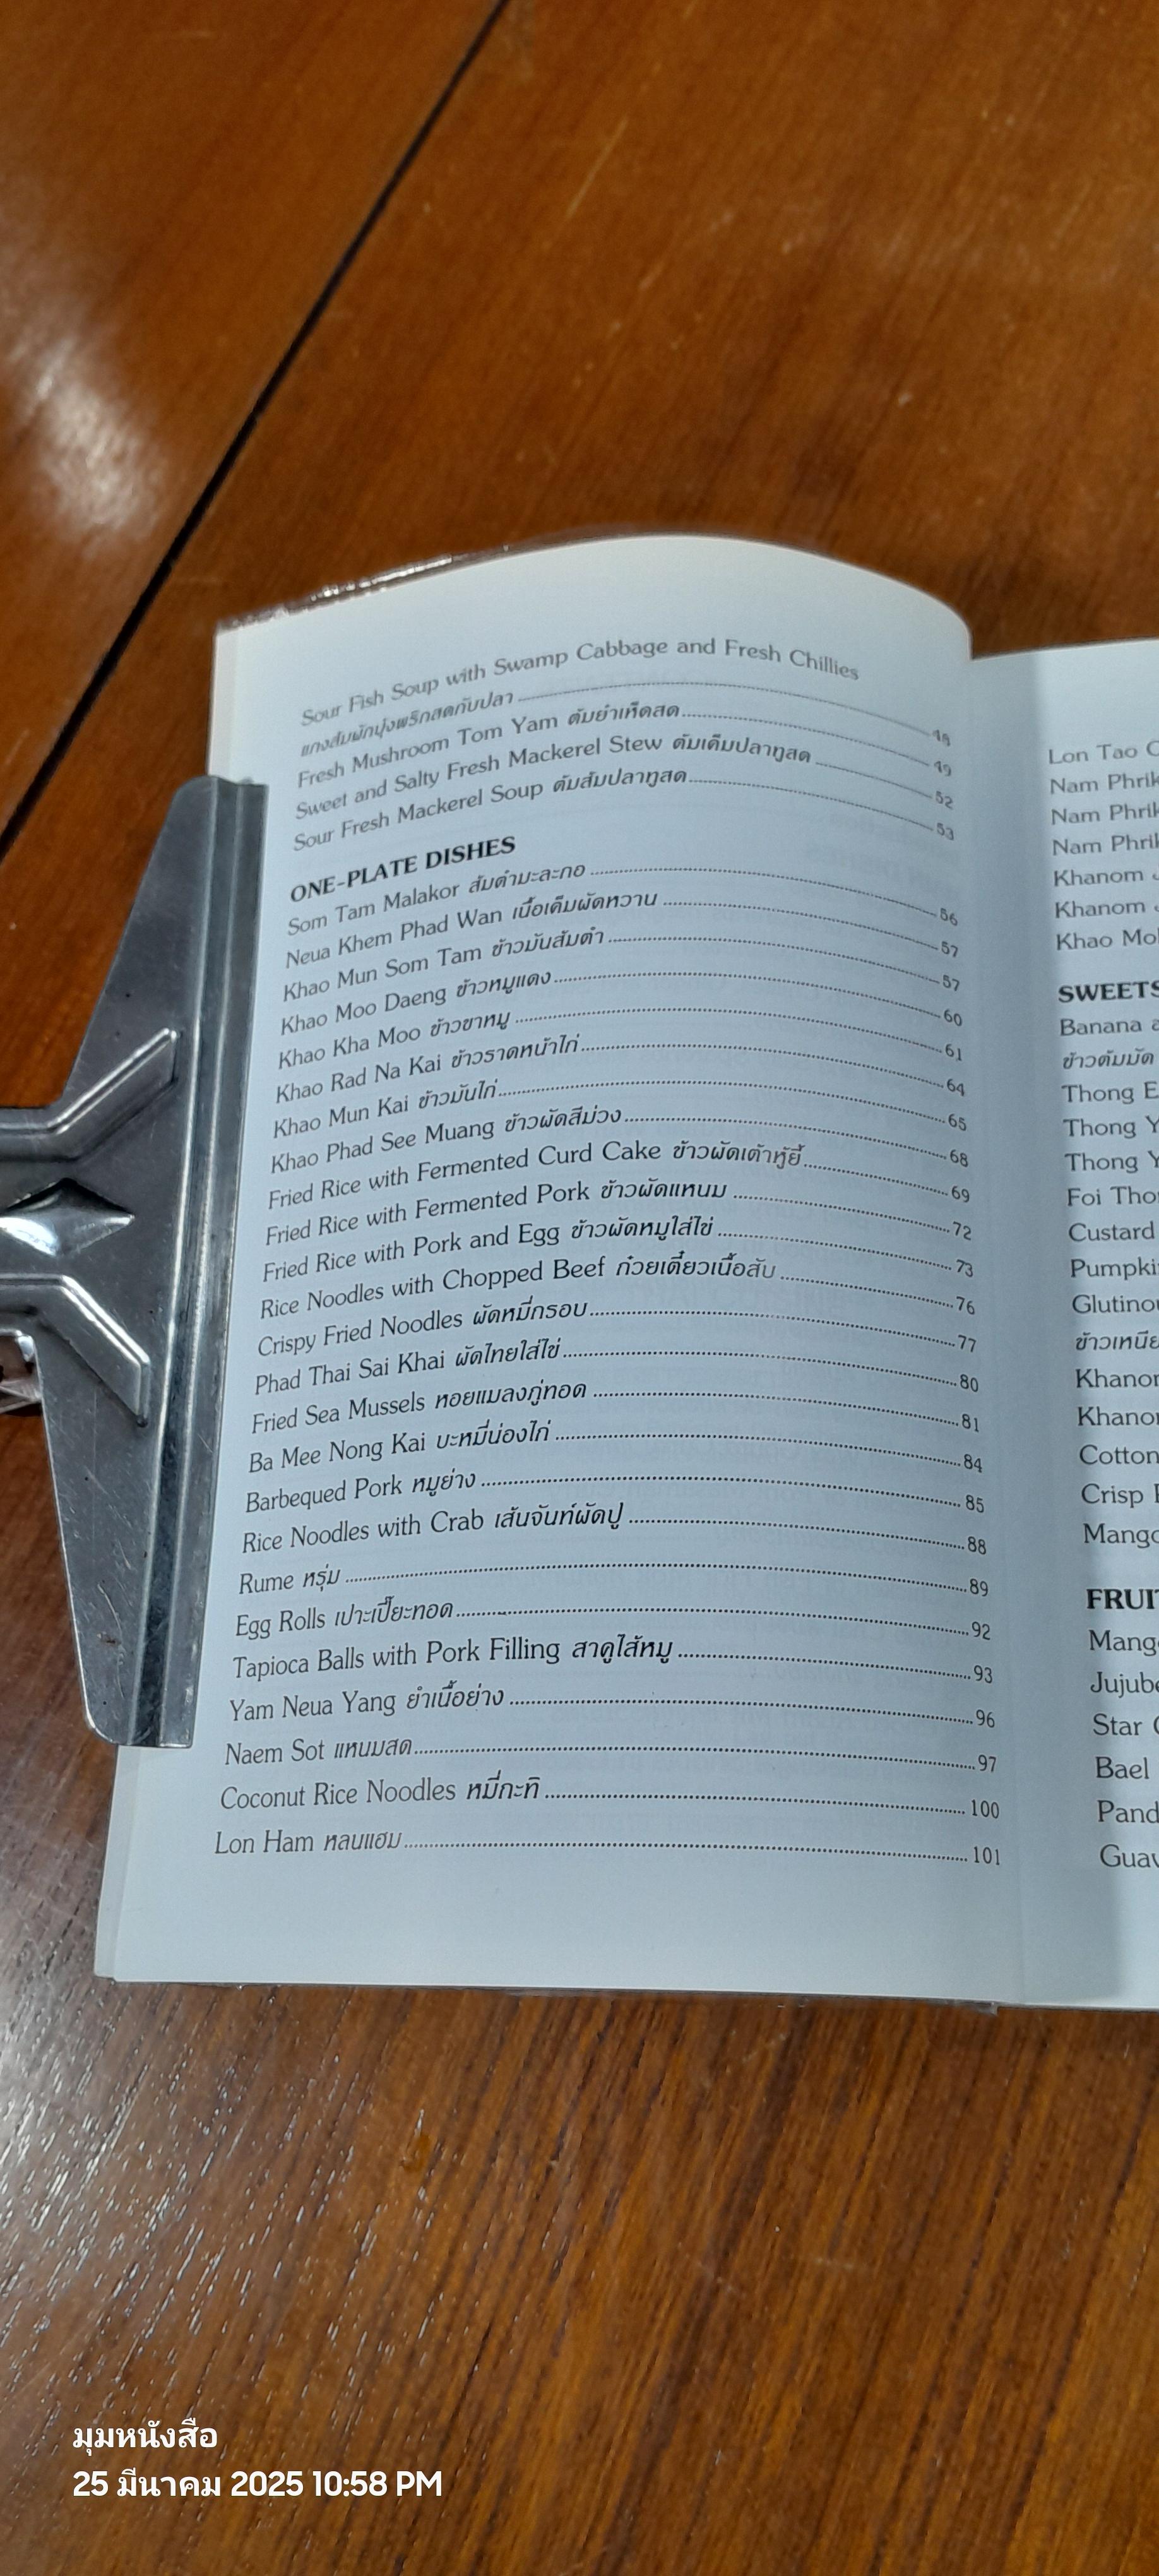 Sour Fish Soup with Swamp Cabbage and Fresh Chillies
แกงส้มผักบุ้งพริกสดกับปลา ........ 48
Fresh Mushroom Tom Yam ต้มยำเห็ดสด ........ 49
Sweet and Salty Fresh Mackerel Stew ต้มเค็มปลาทูสด ........ 52
Sour Fresh Mackerel Soup ต้มส้มปลาทูสด ........ 53
ONE-PLATE DISHES
Som Tam Malakor ส้มตำมะละกอ ........ 56
Neua Khem Phad Wan เนื้อเค็มผัดหวาน ........ 57
Khao Mun Som Tam ข้าวมันส้มตำ ........ 57
Khao Moo Daeng ข้าวหมูแดง ........ 60
Khao Kha Moo ข้าวขาหมู ........ 61
Khao Rad Na Kai ข้าวราดหน้าไก่ ........ 64
Khao Mun Kai ข้าวมันไก่ ........ 65
Khao Phad See Muang ข้าวผัดสีม่วง ........ 68
Fried Rice with Fermented Curd Cake ข้าวผัดเต้าหู้ยี้ ........ 69
Fried Rice with Fermented Pork ข้าวผัดแหนม ........ 72
Fried Rice with Pork and Egg ข้าวผัดหมูใส่ไข่ ........ 73
Rice Noodles with Chopped Beef ก๋วยเตี๋ยวเนื้อสับ ........ 76
Crispy Fried Noodles ผัดหมี่กรอบ ........ 77
Phad Thai Sai Khai ผัดไทยใส่ไข่ ........ 80
Fried Sea Mussels หอยแมลงภู่ทอด ........ 81
Ba Mee Nong Kai บะหมี่น่องไก่ ........ 84
Barbequed Pork หมูย่าง ........ 85
Rice Noodles with Crab เส้นจันท์ผัดปู ........ 88
Rume หรุ่ม ........ 89
Egg Rolls เปาะเปี๊ยะทอด ........ 92
Tapioca Balls with Pork Filling สาคูไส้หมู ........ 93
Yam Neua Yang ยำเนื้อย่าง ........ 96
Naem Sot แหนมสด ........ 97
Coconut Rice Noodles หมี่กะทิ ........ 100
Lon Ham หลนแฮม ........ 101
Lon Tao
Nam Phrik
Nam Phrik
Nam Phrik
Khanom
Khanom
Khao
SWEETS
Banana
ข้าวต้มมัด
Thong
Thong
Thong
Foi
Custard
Khanom
Khanom
Cotton
Crisp
Mango
Star
Bael
มุมหนังสือ
25 มีนาคม 2025 10:58 PM